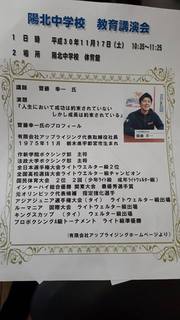 陽北中学校 教育講演会
1 日時 平成30年11月17日(土) 10:35〜11:25
2 場所 陽北中学校 体育館
講師 齋藤 幸一 氏
演題
「人生において成功は約束されていない
しかし成長は約束されている」
齋藤幸一氏のプロフィール
有限会社アップライジング代表取締役社長
1975年11月 栃木県宇都宮市生まれ
作新学院ボクシング部 主将
法政大学ボクシング部 主将
全日本選手権大会ライトウェルター級2位
全国高校選抜大会ライトウェルター級チャンピオン
国民体育大会 2位 2回
インターハイ総合優勝 開東大会 最優秀選手賞
元オリンピック代表候補 指定強化選手
アジアジュニア選手権大会(タイ) ライトウェルター級出場
ルーマニア 国際大会 ライトウェルター級出場
キングスカップ (タイ) ウェルター級出場
プロボクシングA級トーナメント ライト級準優勝
(有限会社アップライジングホームページより)